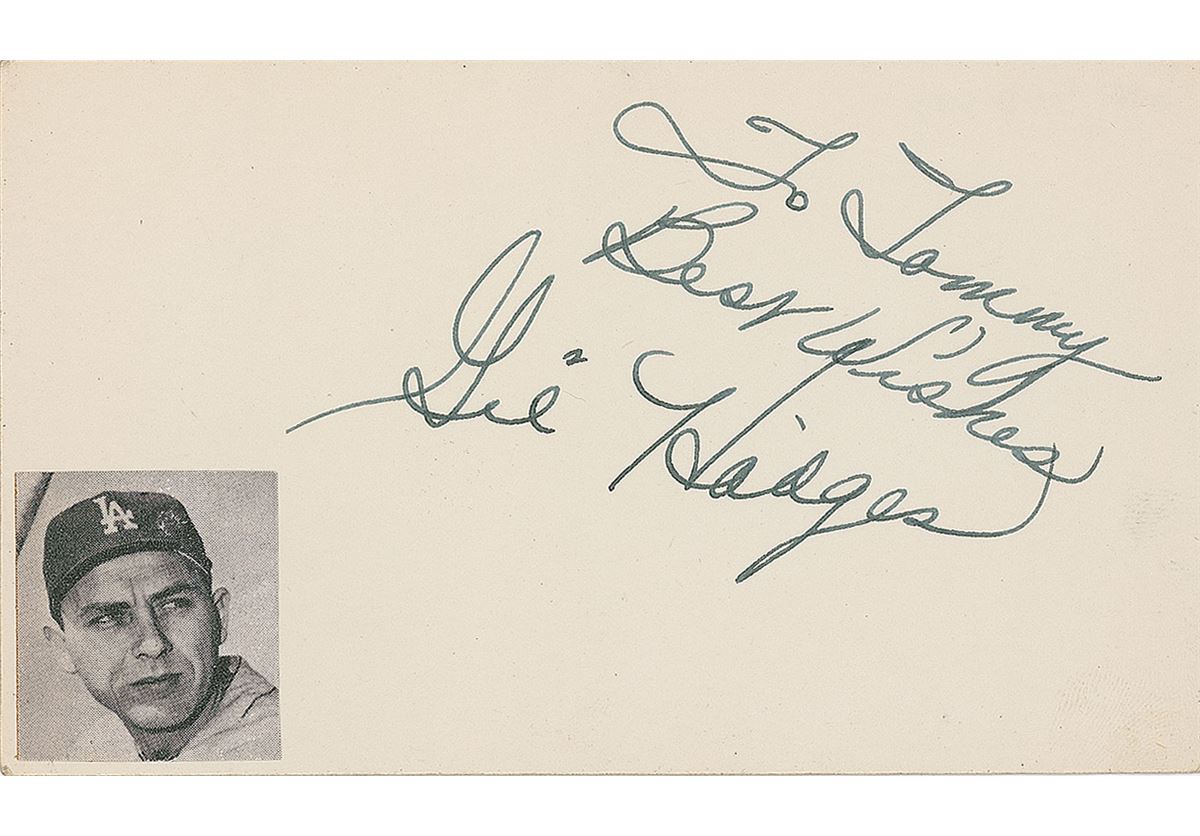 To Tommy
Best Wishes
Gil Hodges
LA